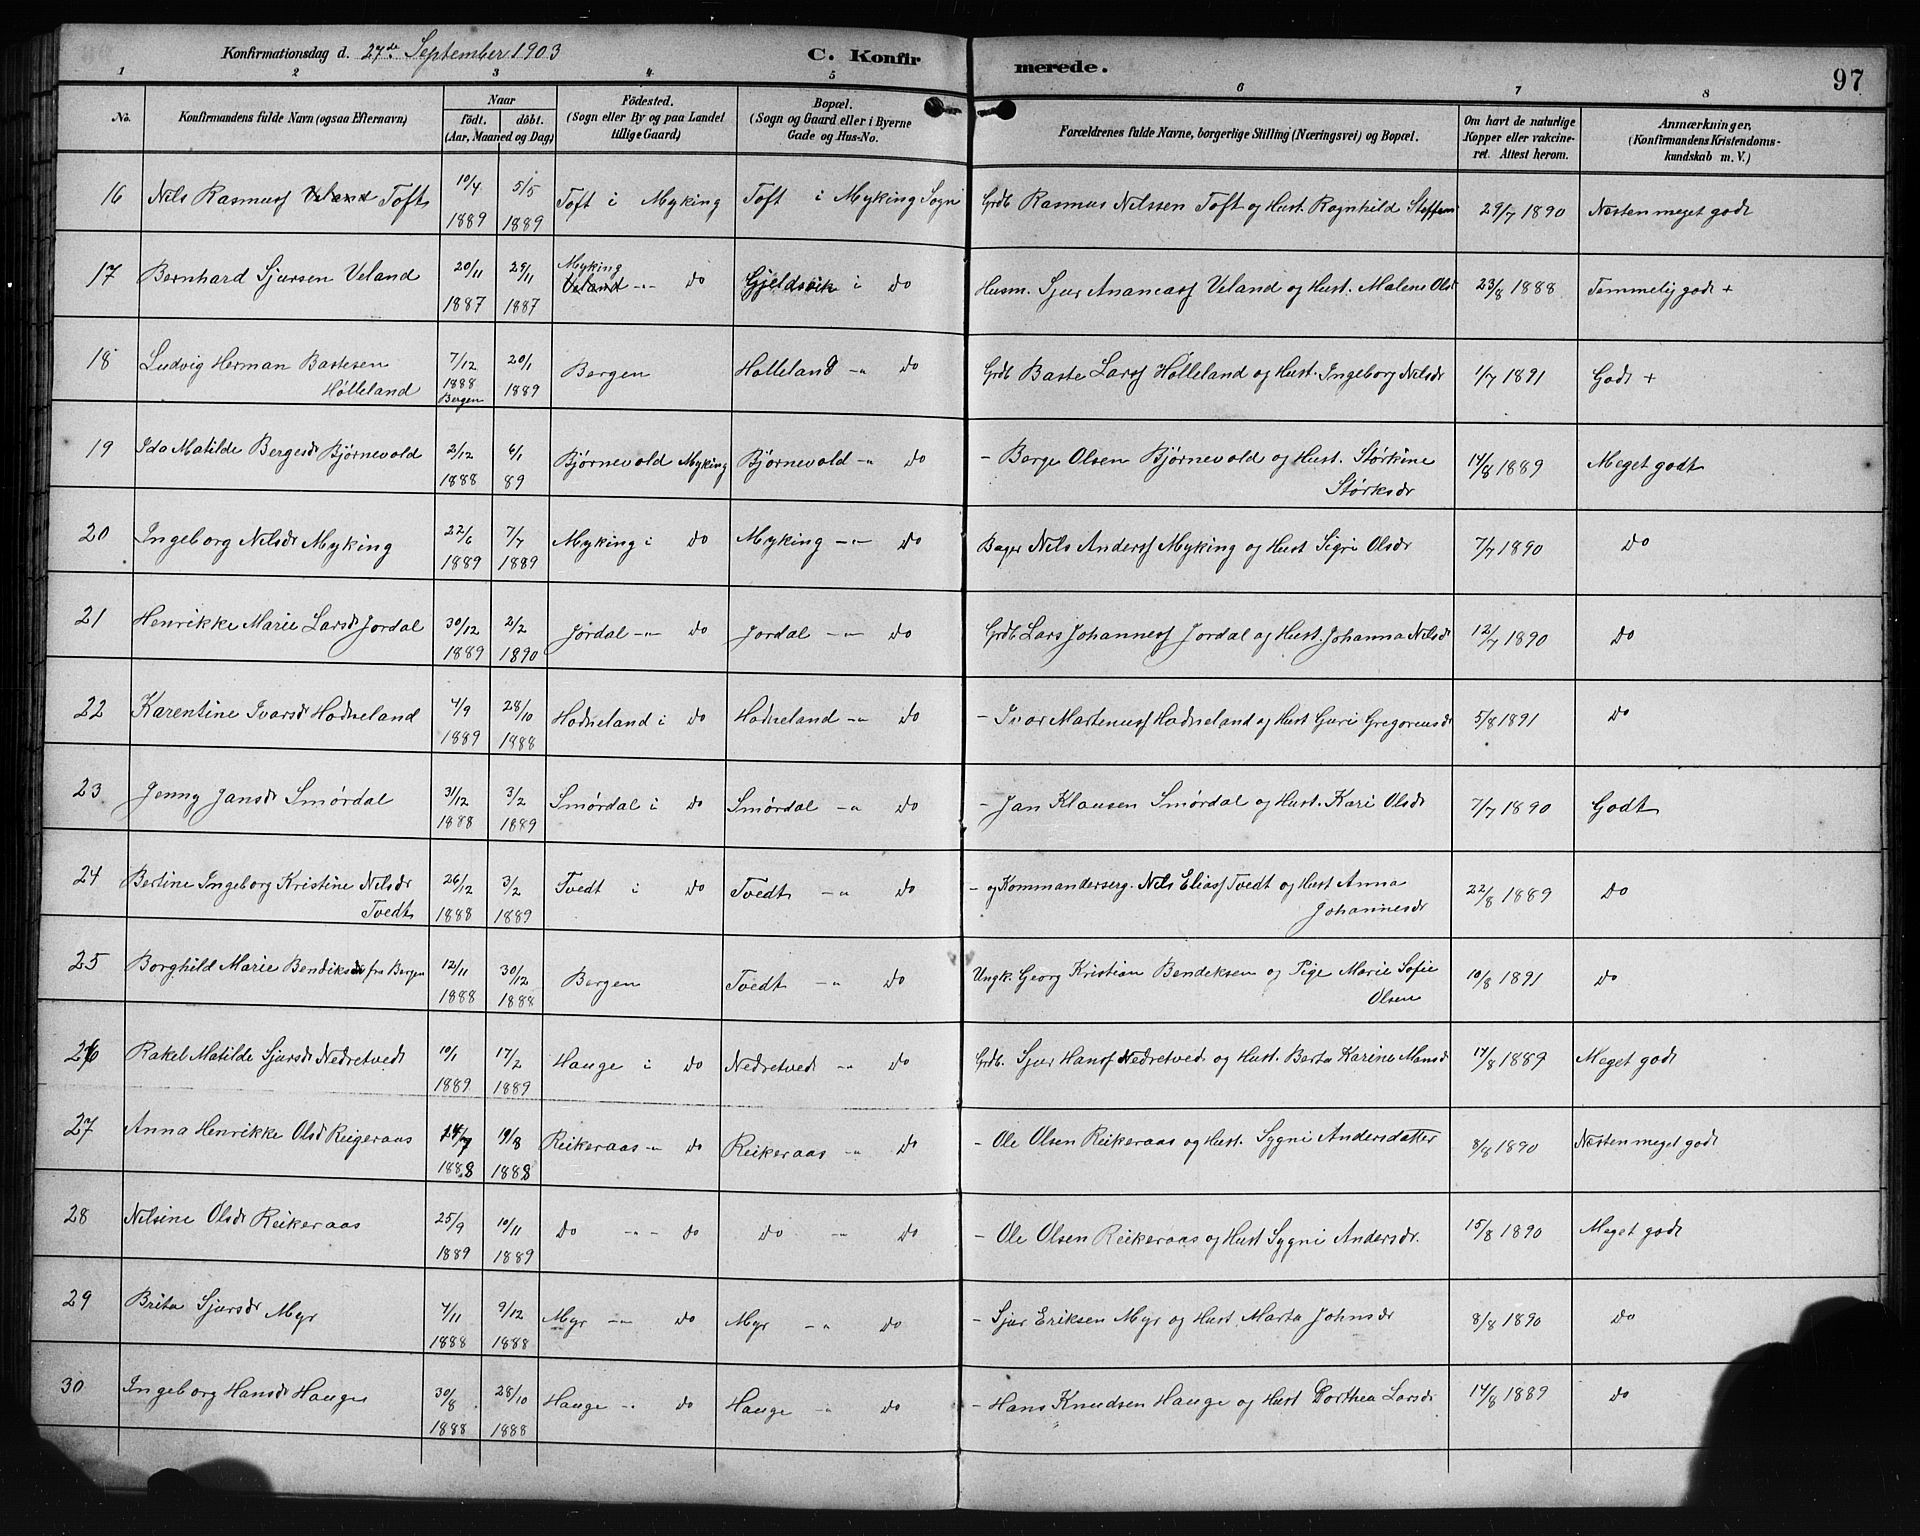 Konfirmationsdag d. 27de September 1903 C. Konfirmerede. 97
1 2 3 4 5 6 7 8
No. Konfirmandens fulde Navn (ogsaa Efternavn)
Naar født. døbt. (Aar, Maaned og Dag)
Fødested. (Sogn eller By og paa Landet tillige Gaard)
Bopæl. (Sogn og Gaard eller i Byerne Gade og Hus-No.
Forældrenes fulde Navne, borgerlige Stilling (Næringsvei) og Bopæl.
Om havt de naturlige Kopper eller vakcineret. Attest herom.
Anmærkninger. (Konfirmandens Kristendomskundskab m. V.)
16 Nils Rasmuss Veland Toft 10/4 1889 5/5 1889 Toft i Myking Toft i Myking Sogn Grdb Rasmus Nilssen Toft og Hust. Ragnhild Steffens 29/7 1890 Næsten meget godt
17 Bernhard Sjursen Veland 20/11 1887 29/11 1887 Myking Veland -"- do Gjeldsvik i do Husm. Sjur Ananiass Veland og Hust. Malene Olsd 23/8 1888 Temmelig godt +
18 Ludvig Herman Bastesen Hølleland 7/12 1888 Bergen 20/1 1889 Bergen Hølleland -"- do Grdb Baste Larss Hølleland og Hust. Ingeborg Nilsdr 1/7 1891 Godt +
19 Ida Matilde Bergesdr Bjørnevold 2/12 1888 6/1 89 Bjørnevold Myking Bjørnevold -"- do - Berge Olsen Bjørnevold og Hust. Størkine Størksdr 14/8 1889 Meget godt
20 Ingeborg Nilsdr Myking 22/6 1889 7/7 1889 Myking i do Myking -"- do Bager Nils Anderss Myking og Hust Sigri Olsdr 7/7 1890 do
21 Henrikke Marie Larsdr Jordal 30/12 1889 2/2 1890 Jordal -"- do Jordal -"- do Grdb Lars Johanness Jordal og Hust. Johanna Nilsdr 12/7 1890 do
22 Karentine Ivarsdr Hodneland 4/9 1889 28/10 1888 Hodneland i do Hodneland -"- do - Ivar Martenuss Hodneland og Hust Guri Gregoriusdr 5/8 1891 do
23 Jenny Jansdr Smørdal 31/12 1888 3/2 1889 Smørdal i do Smørdal -"- do - Jan Klausen Smørdal og Hust. Kari Olsdr 7/7 1890 Godt
24 Bertine Ingeborg Kristine Nilsdr Tvedt 26/12 1888 3/2 1889 Tvedt i do Tvedt -"- do - og Kommanderserg. Nils Eliass Tvedt og Hust Anna Johannesdr 22/8 1889 do
25 Borghild Marie Bendiksdr fra Bergen 12/11 1888 30/12 1888 Bergen Tvedt -"- do Ungk. Georg Kristian Bendeksen og Pige Marie Sofie Olsen 10/8 1891 do
26 Rakel Matilde Sjursdr Nedretvedt 10/1 1889 17/2 1889 Hauge i do Nedretvedt -"- do Grdb. Sjur Hanss Nedretved. og Hust. Berta Karine Monsdr 14/8 1889 Meget godt
27 Anna Henrikke Olsd Reigeraas 24/7 1888 19/8 1888 Reikeraas -"- do Reikeraas -"- do - Ole Olsen Reikeraas og Hust. Sygni Andersdatter 8/8 1890 Næsten meget godt
28 Nilsine Olsdr Reikeraas 25/9 1889 10/11 1889 do -"- do do -"- do - Ole Olsen Reikeraas og Hust Sygni Andersdr. 15/8 1890 Meget godt
29 Brita Sjursdr Myr 4/11 1888 9/12 1888 Myr -"- do Myr -"- do - Sjur Eriksen Myr og Hust. Marta Johnsdr 8/8 1890 do
30 Ingeborg Hansdr Hauge 30/8 1888 28/10 1888 Hauge -"- do Hauge -"- do - Hans Knudsen Hauge og Hust Dorthea Larsdr 14/8 1889 do